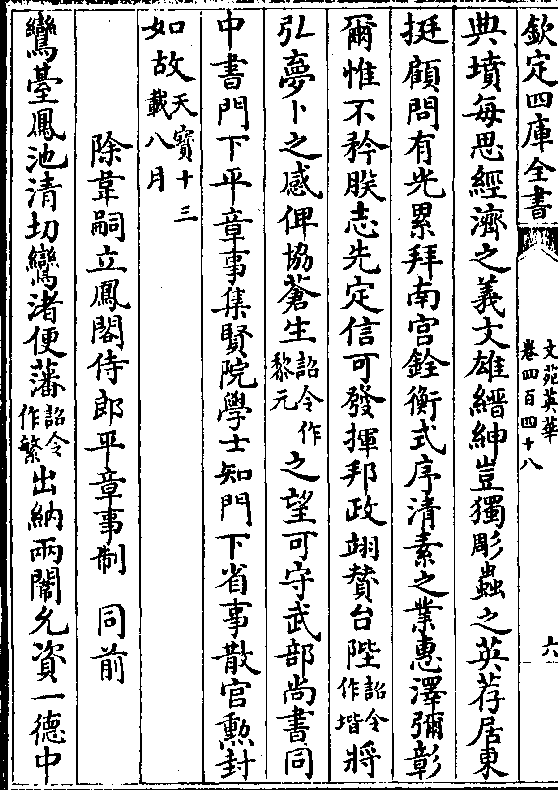 欽定四庫全書
文苑英華
卷四百四十八
六
典墳每思經濟之義文雄縉紳豈獨彫蟲之英荐居東
挺顧問有光累拜南宫銓衡式序清素之業惠澤彌彰
爾惟不矜朕志先定信可發揮邦政翊賛台陛詔令作堦將
弘夢卜之感俾協蒼生詔令作黎元之望可守武部尚書同
中書門下平章事集賢院學士知門下省事散官勲封
如故天寳十三載八月
除韋嗣立鳳閣侍郎平章事制 同前
鸞臺鳳池清切鸞渚便藩詔令作繁出納兩闈允資一德中